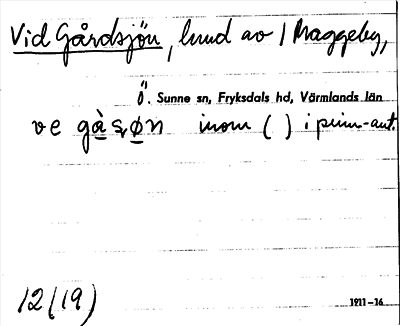 Vid Gårdsjön, lund av / Maggeby,
Ö. Sunne sn, Fryksdals hd, Värmlands län
ve gàsøn inom ( ) i prim-ant.
12(19)
1911-16